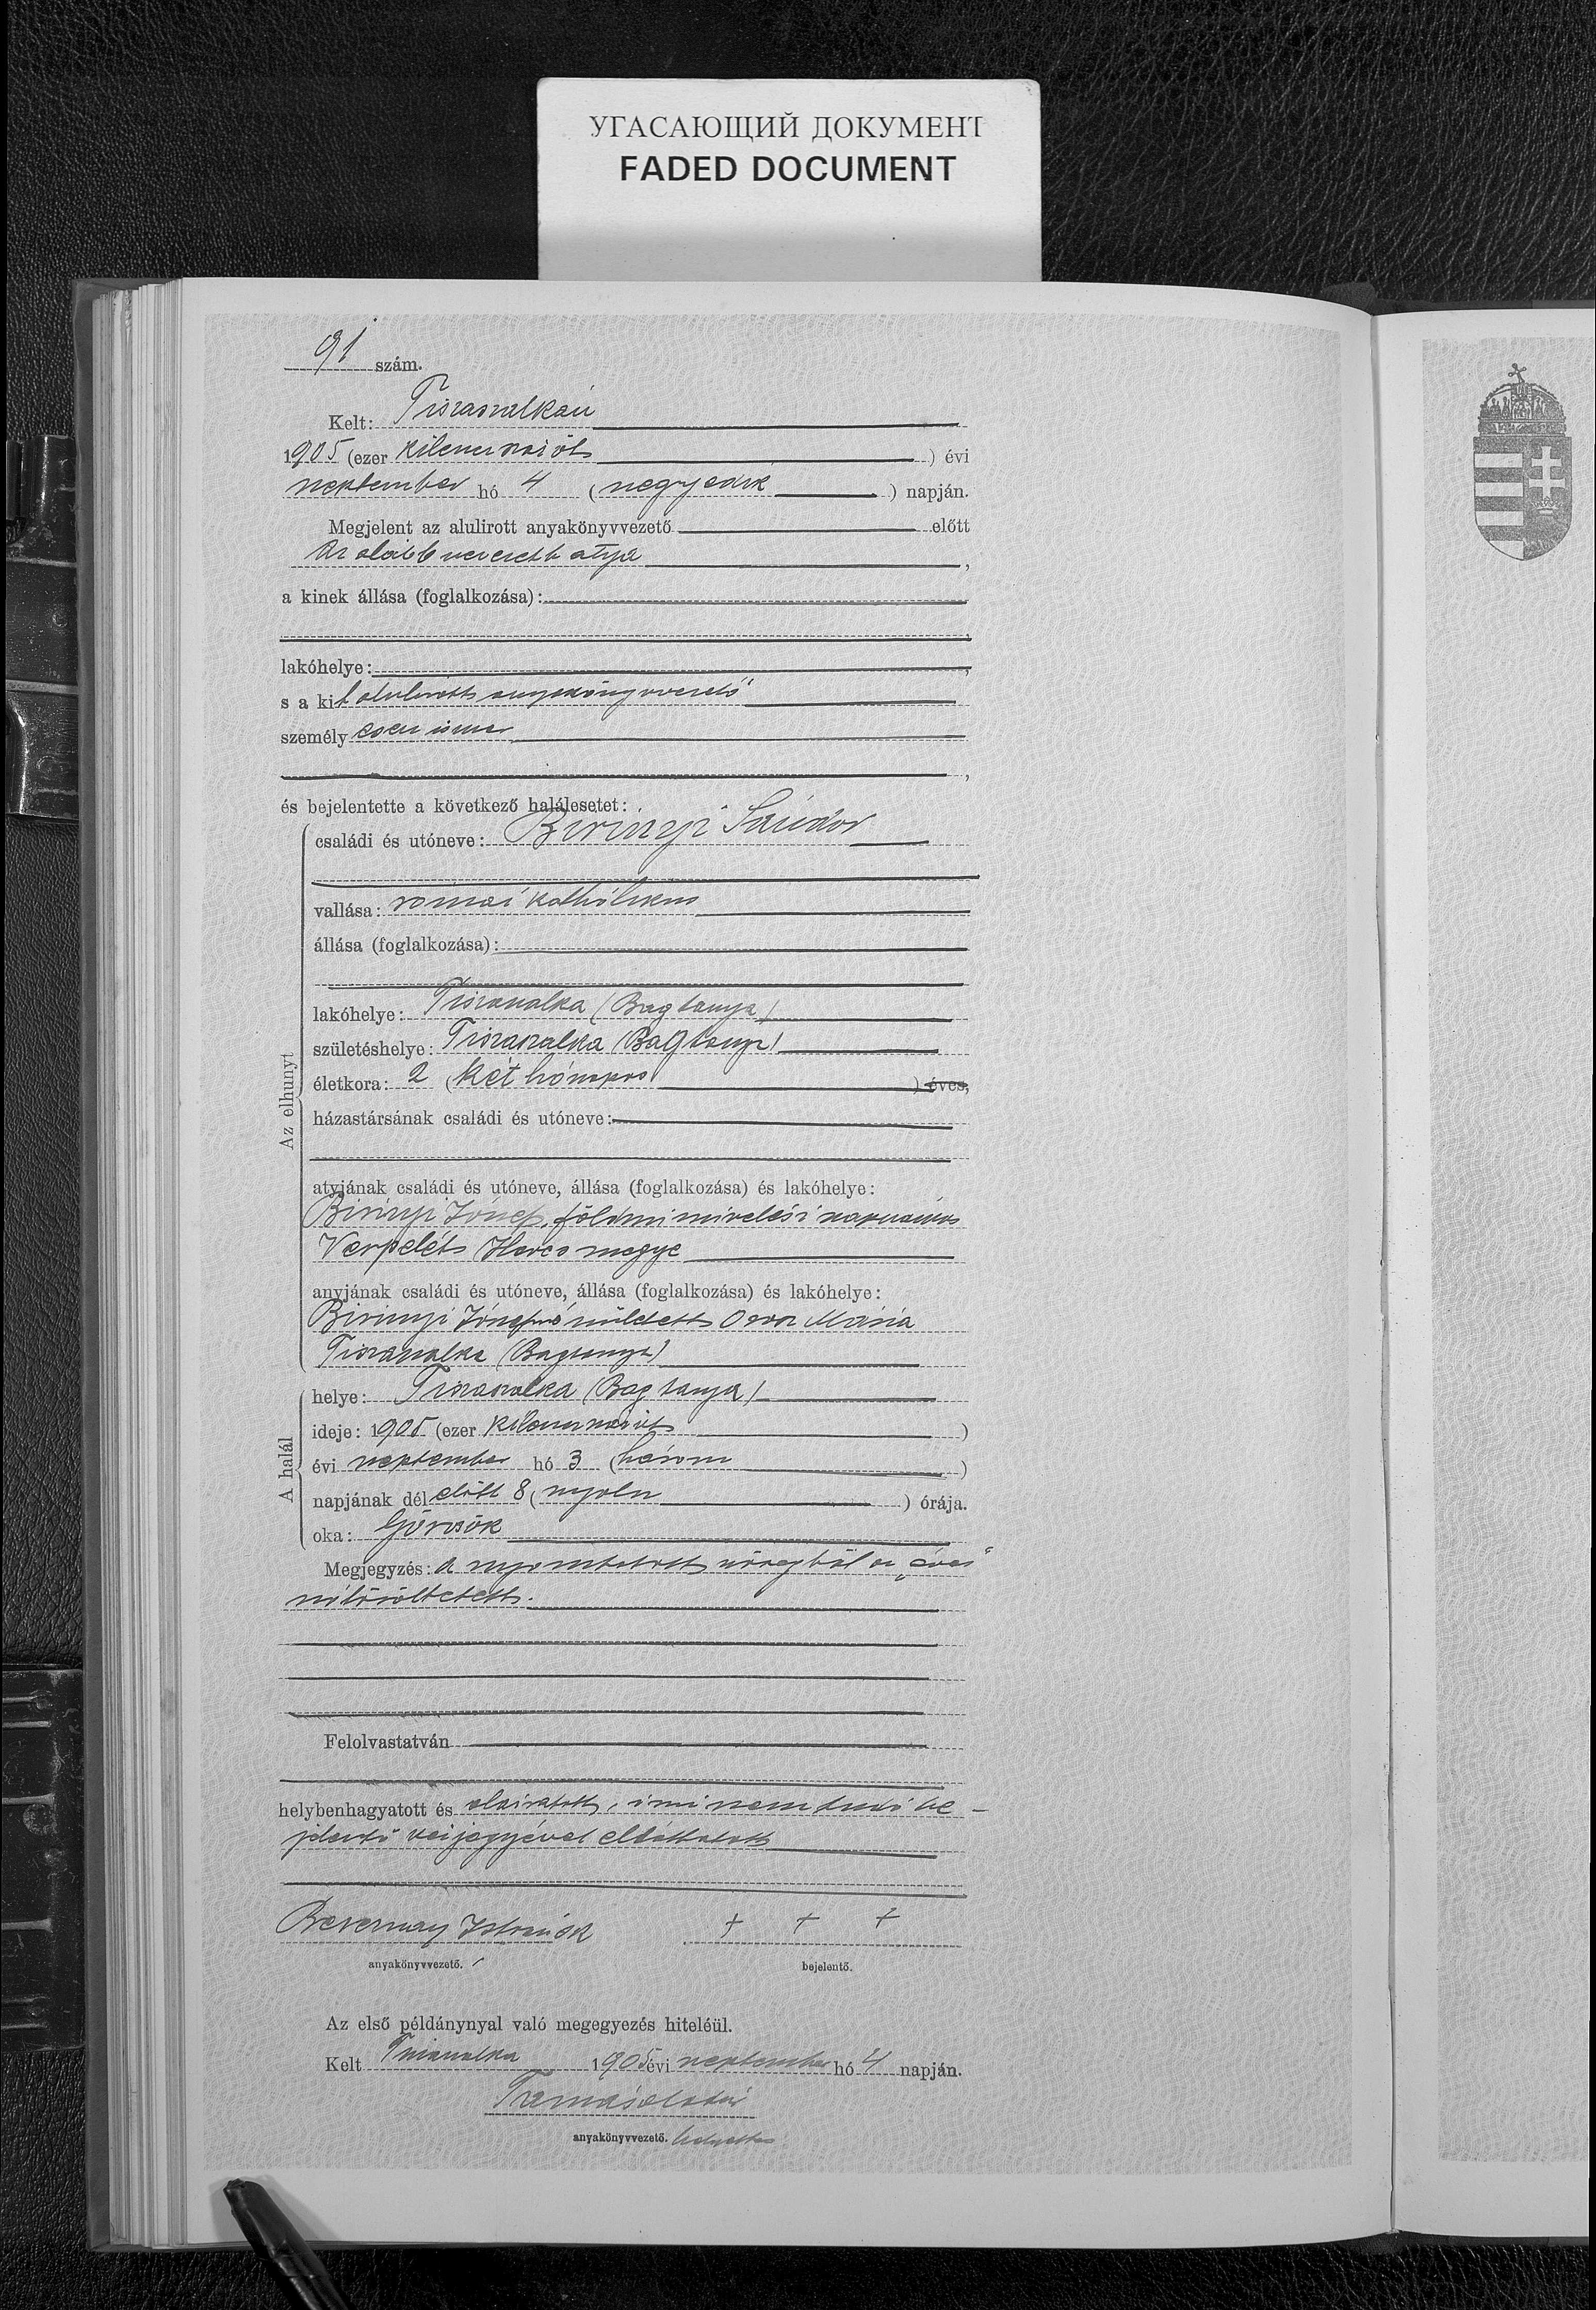 УГАСАЮЩИЙ ДОКУМЕНТ
FADED DOCUMENT
91 szám.
Kelt: Tiszaszalkán
1905 (ezer kilenczszázöt ) évi
szeptember hó 4 (negyedik ) napján.
Megjelent az alulirott anyakönyvvezető előtt
az alább nevezett atya ,
a kinek állása (foglalkozása):
lakóhelye: ,
s a kit alulirott anyakönyvvezető
személyesen ismer
,
és bejelentette a következő halálesetet:
Az elhunyt
családi és utóneve: Birinyi Sándor
vallása: római katholikus
állása (foglalkozása):
lakóhelye: Tiszaszalka (Bagtanya)
születéshelye: Tiszaszalka (Bagtanya)
életkora: 2 (két hónapos ) éves,
házastársának családi és utóneve:
atyjának családi és utóneve, állása (foglalkozása) és lakóhelye:
Birinyi József, földmivelési napszámos
Verpelét, Heves megye
anyjának családi és utóneve, állása (foglalkozása) és lakóhelye:
Birinyi Józsefné született Mária
Tiszaszalka (Bagtanya)
A halál
helye: Tiszaszalka (Bag tanya)
ideje: 1905 (ezer kilenczszázöt )
évi szeptember hó 3 (három )
napjának délelőtt 8 (nyolcz ) órája.
oka: Görcsök
Megjegyzés: A nyomtatott szövegből az „éves"
szó töröltetett.
Felolvastatván
helybenhagyatott és aláiratott, irni nem tudó be-
jelentő kézjegyével elláttatott
István + + +
anyakönyvvezető. bejelentő.
Az első példánynyal való megegyezés hiteléül.
Kelt Tiszaszalka 1905 évi szeptember hó 4 napján.
anyakönyvvezető. helyettes